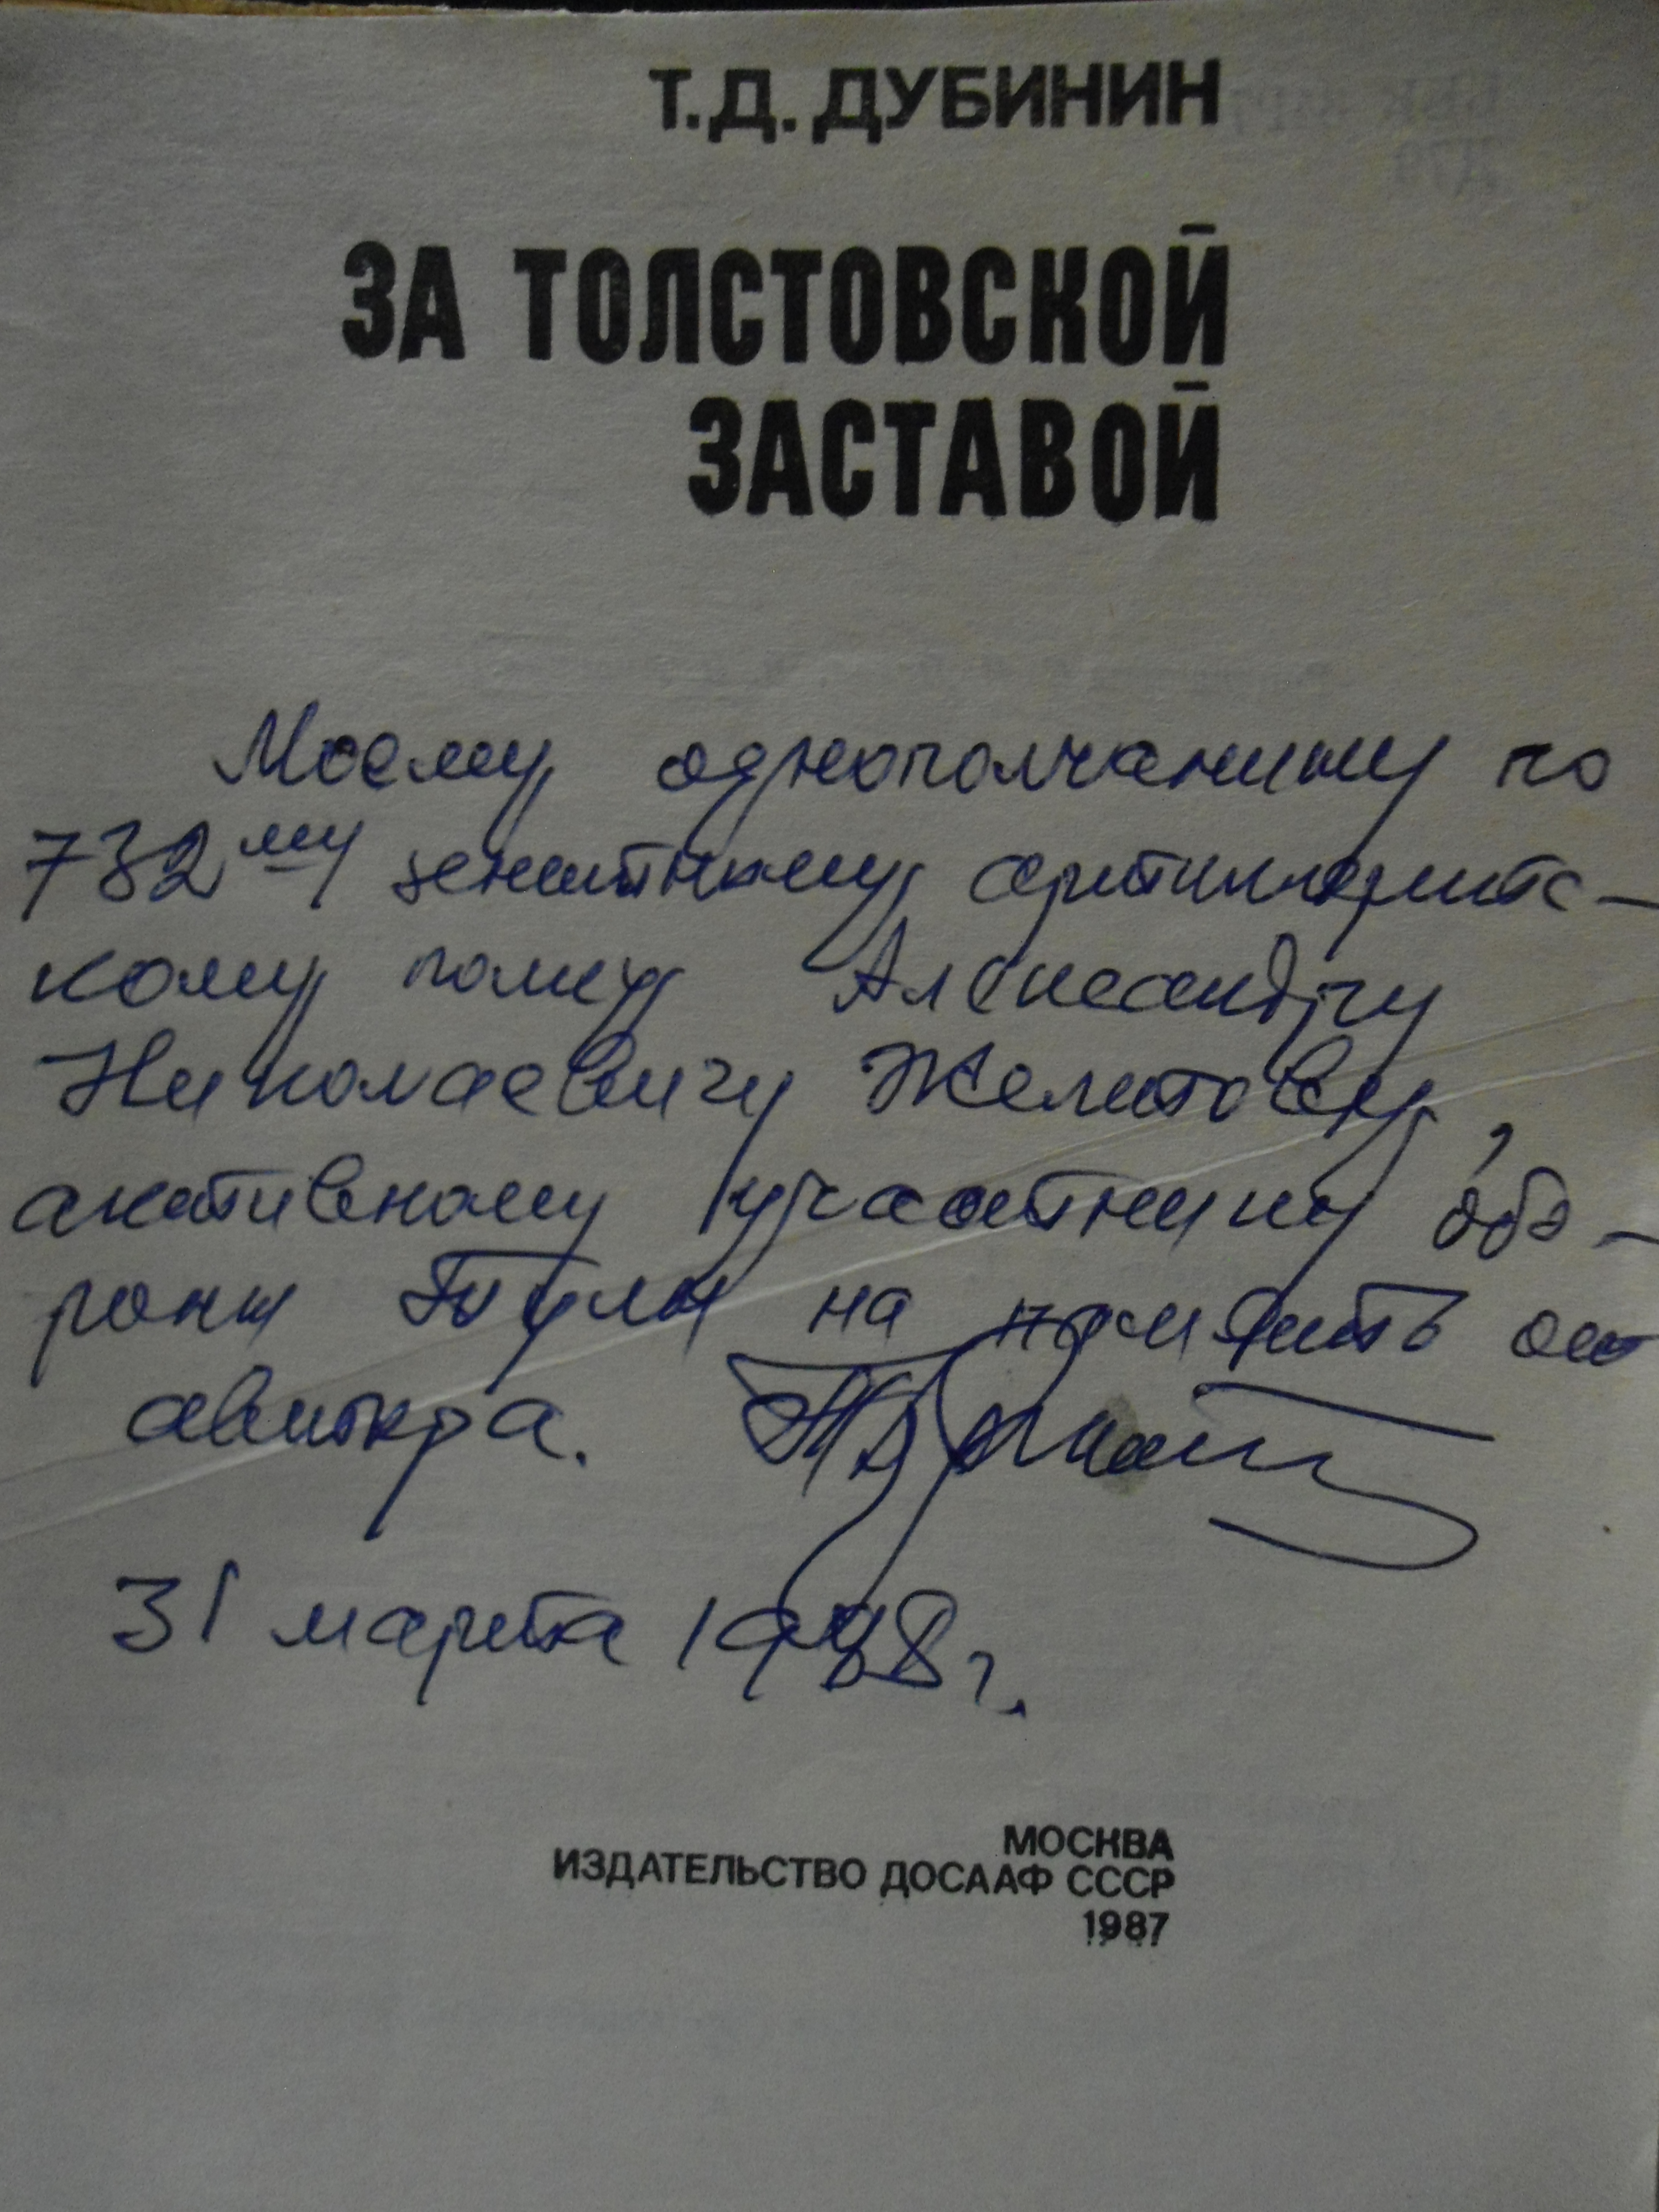 Т.Д. ДУБИНИН
ЗА ТОЛСТОВСКОЙ
ЗАСТАВОЙ
Моему однополчанину по
732му зенитному артиллерийс-
кому полку Александру
Николаевичу Желтову,
активному участнику обо-
роны Тулы на память от
автора.
31 марта 1988 г.
МОСКВА
ИЗДАТЕЛЬСТВО ДОСААФ СССР
1987